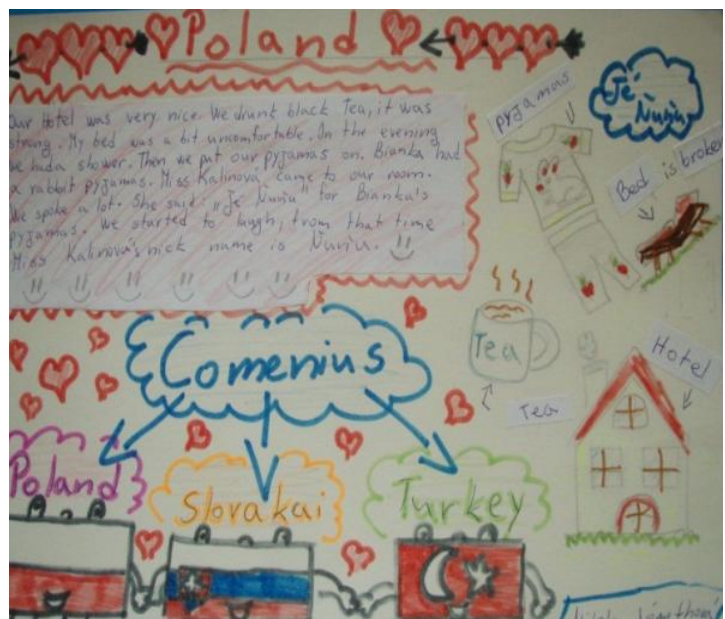 Poland
Our Hotel was very nice. We drunk black Tea, it was
strong. My bed was a bit uncomfortable. In the evening
we had a shower. Then we put our pyjamas on. Bianka had
a rabbit pyjamas. Miss Kalinová came to our room.
We spoke a lot. She said: „Jé Ňuňu" for Bianka's
pyjamas. We started to laugh, from that time
Miss Kalinová's nick name is Ňuňu.
pyjamas
Jé
Ňuňu
Bed is broken
Tea
Tea
Hotel
Comenius
Poland
Slovakai
Turkey